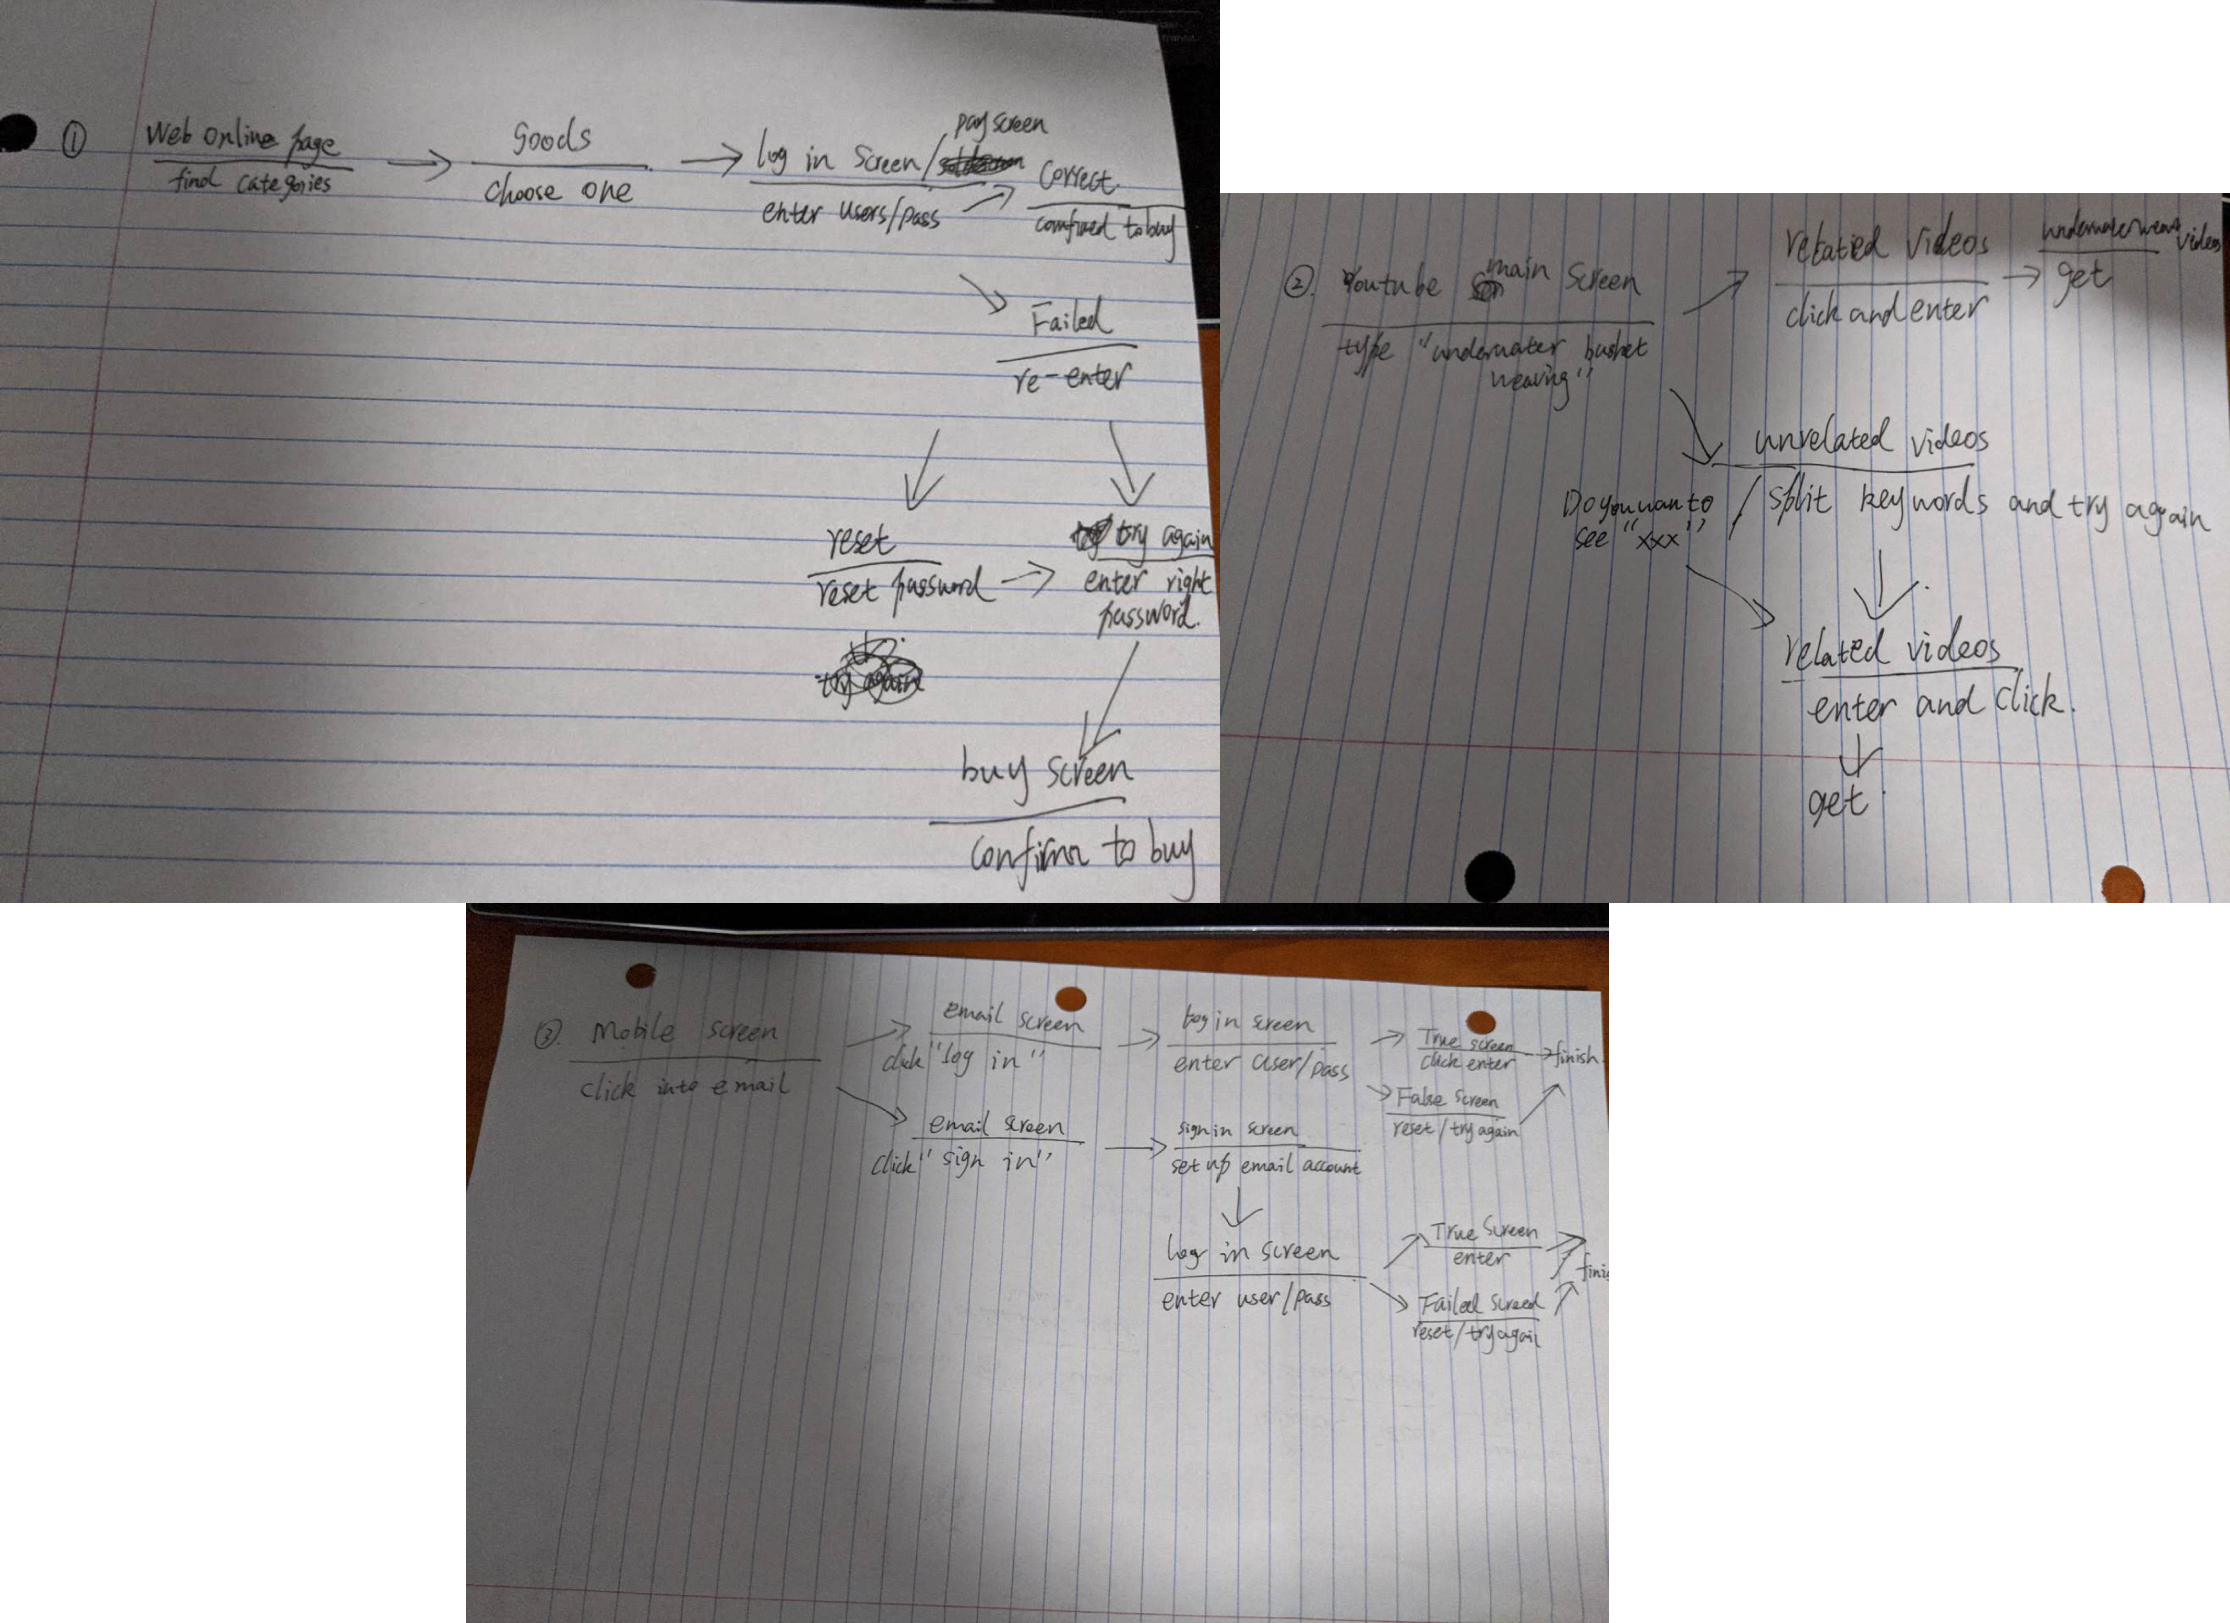 ①
Web online page
find categories
Goods
choose one
pay screen
log in screen/
enter users/pass
Correct.
comfired to buy
Failed
re-enter
reset
reset password
try again
enter right
password.
try again
buy screen
confirm to buy
②. Youtube main screen
type "underwater basket
weaving"
related videos
click and enter
videos
get
unrelated videos
/ split keywords and try again
Do you wan to
see "xxx"
related videos
enter and click.
get.
③. Mobile screen
click into email
email screen
click "log in"
log in screen
enter user/pass
True screen
click enter
finish.
False screen
reset/try again
email screen
click "sign in"
sign in screen
set up email account
log in screen
enter user/pass
True Screen
enter
Failed screed
reset/try again
finis